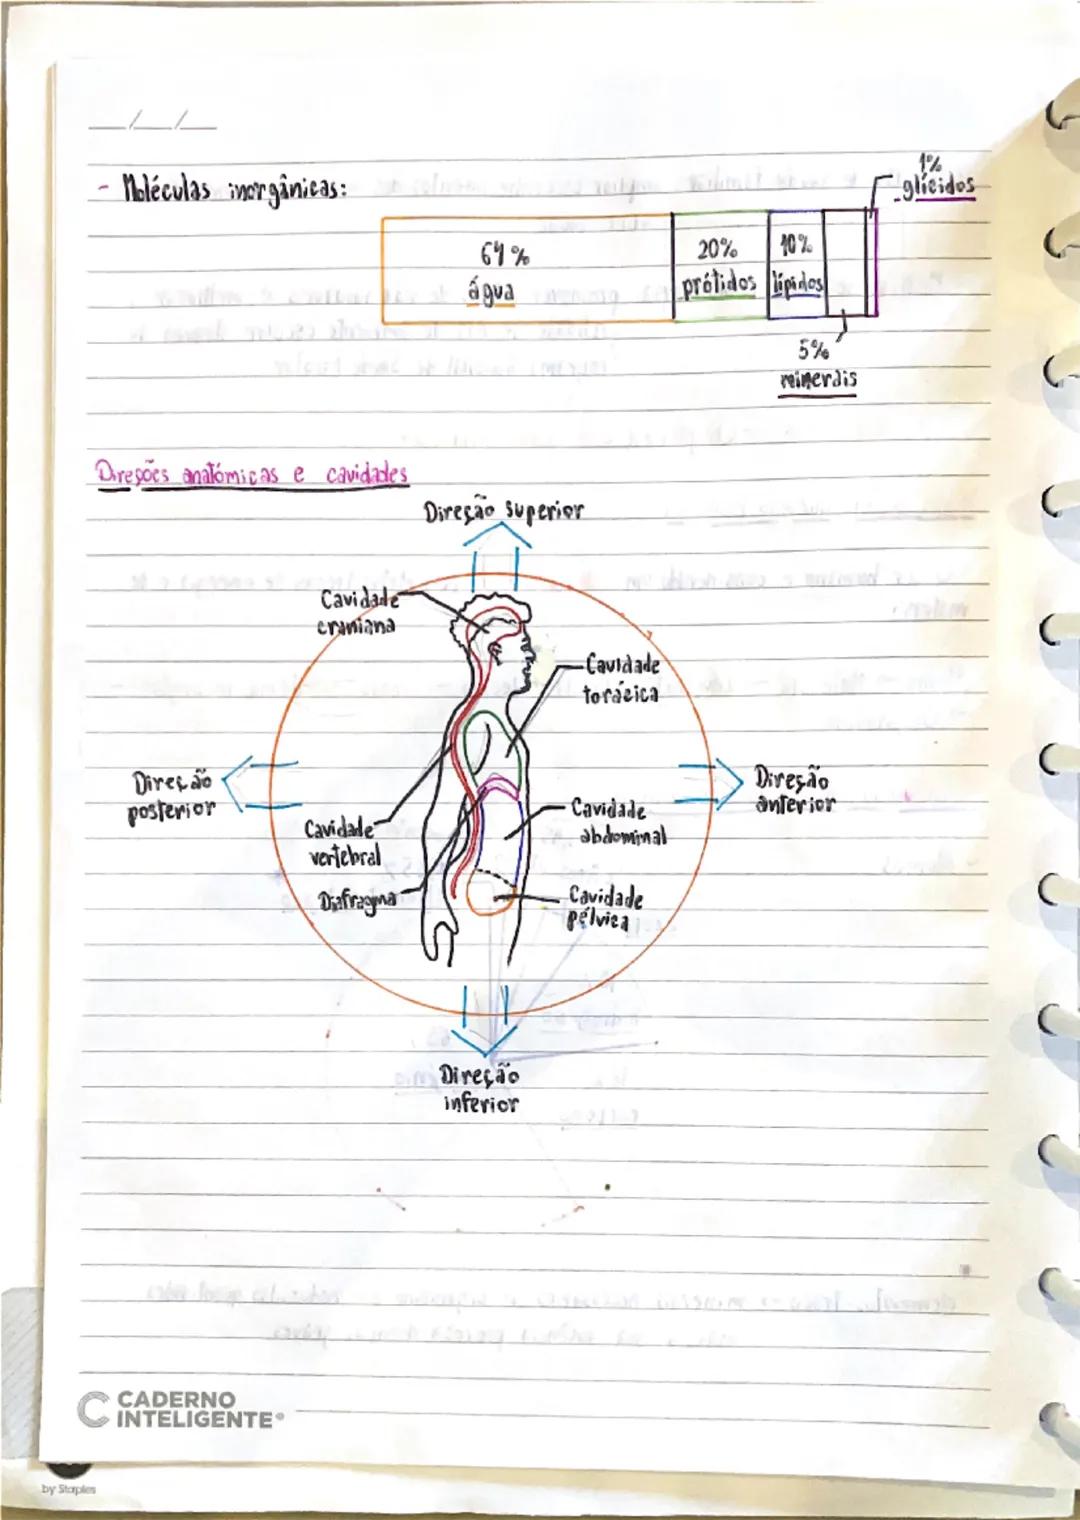 - Moléculas inorgânicas:
1%
glícidos
64%
água
20%
prótidos
10%
lípidos
5%
minerais
Direções anatómicas e cavidades
Direção superior
Cavidade
craniana
Cavidade
torácica
Direção
posterior
Direção
anterior
Cavidade
vertebral
Cavidade
abdominal
Diafragma
Cavidade
pélvica
Direção
inferior
CADERNO
INTELIGENTE®
by Staples